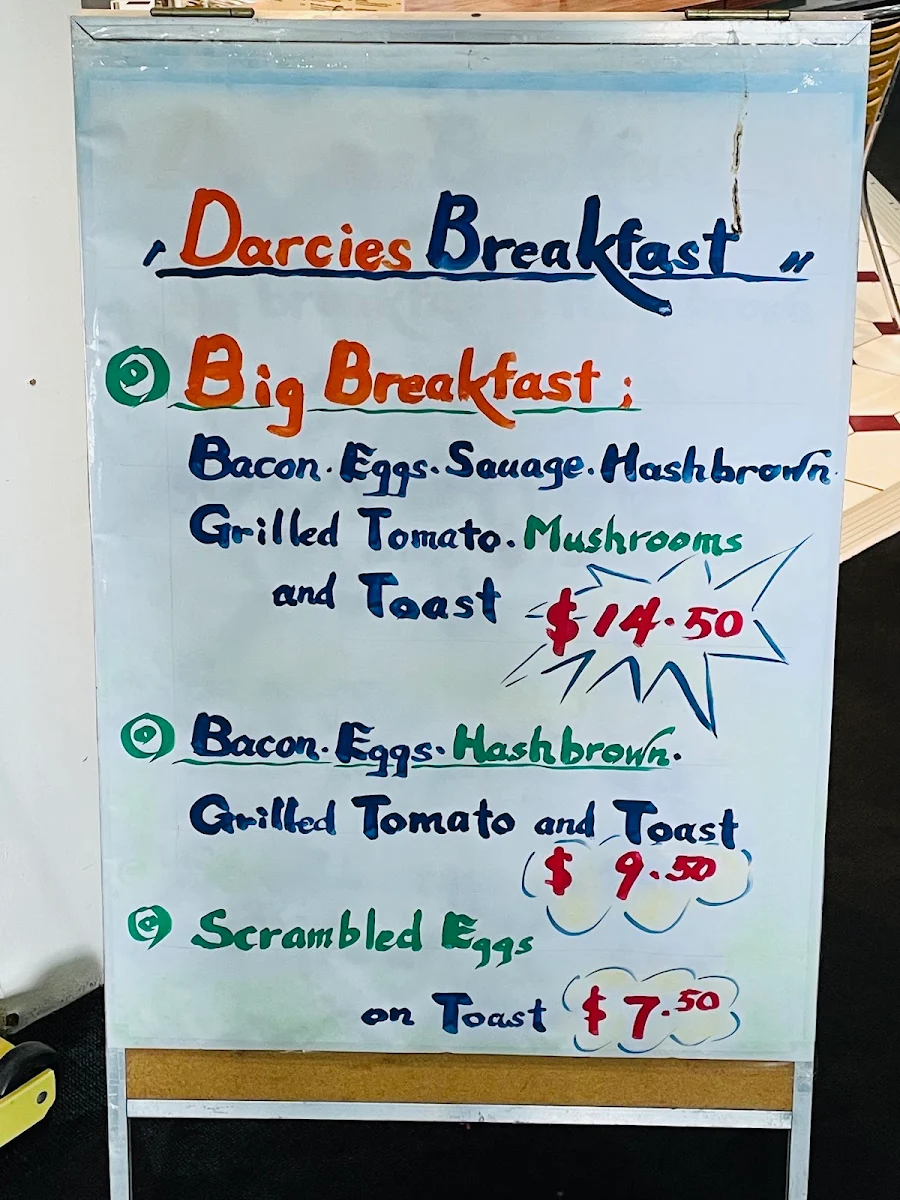 , Darcies Breakfast "
Big Breakfast ;
Bacon. Eggs. Sauage. Hashbrown.
Grilled Tomato. Mushrooms
and Toast $14.50
Bacon. Eggs. Hashbrown.
Grilled Tomato and Toast
$ 9.50
Scrambled Eggs
on Toast $7.50